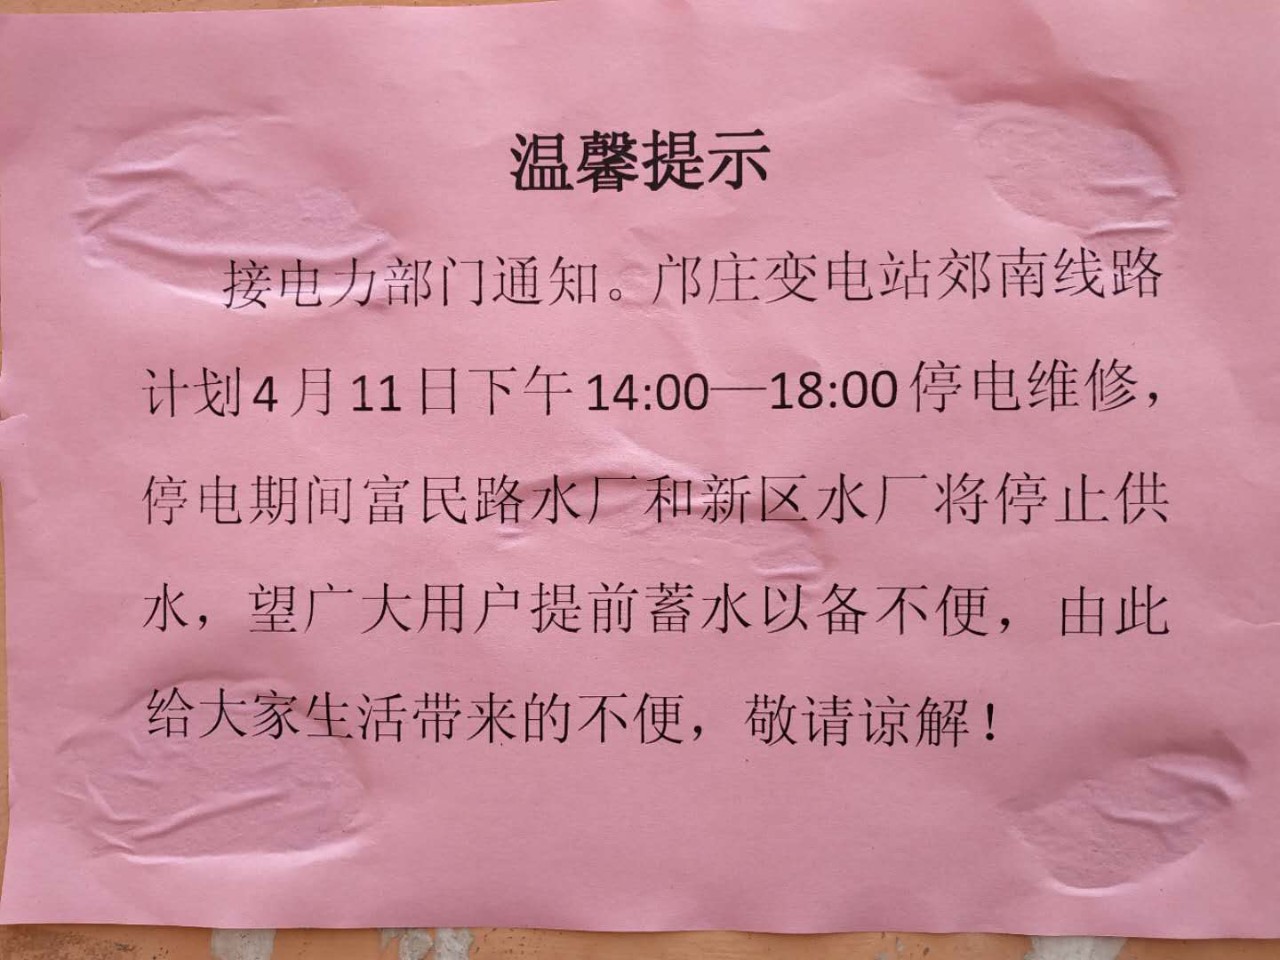 温馨提示
接电力部门通知。邝庄变电站郊南线路
计划4月11日下午14:00—18:00停电维修，
停电期间富民路水厂和新区水厂将停止供
水，望广大用户提前蓄水以备不便，由此
给大家生活带来的不便，敬请谅解！